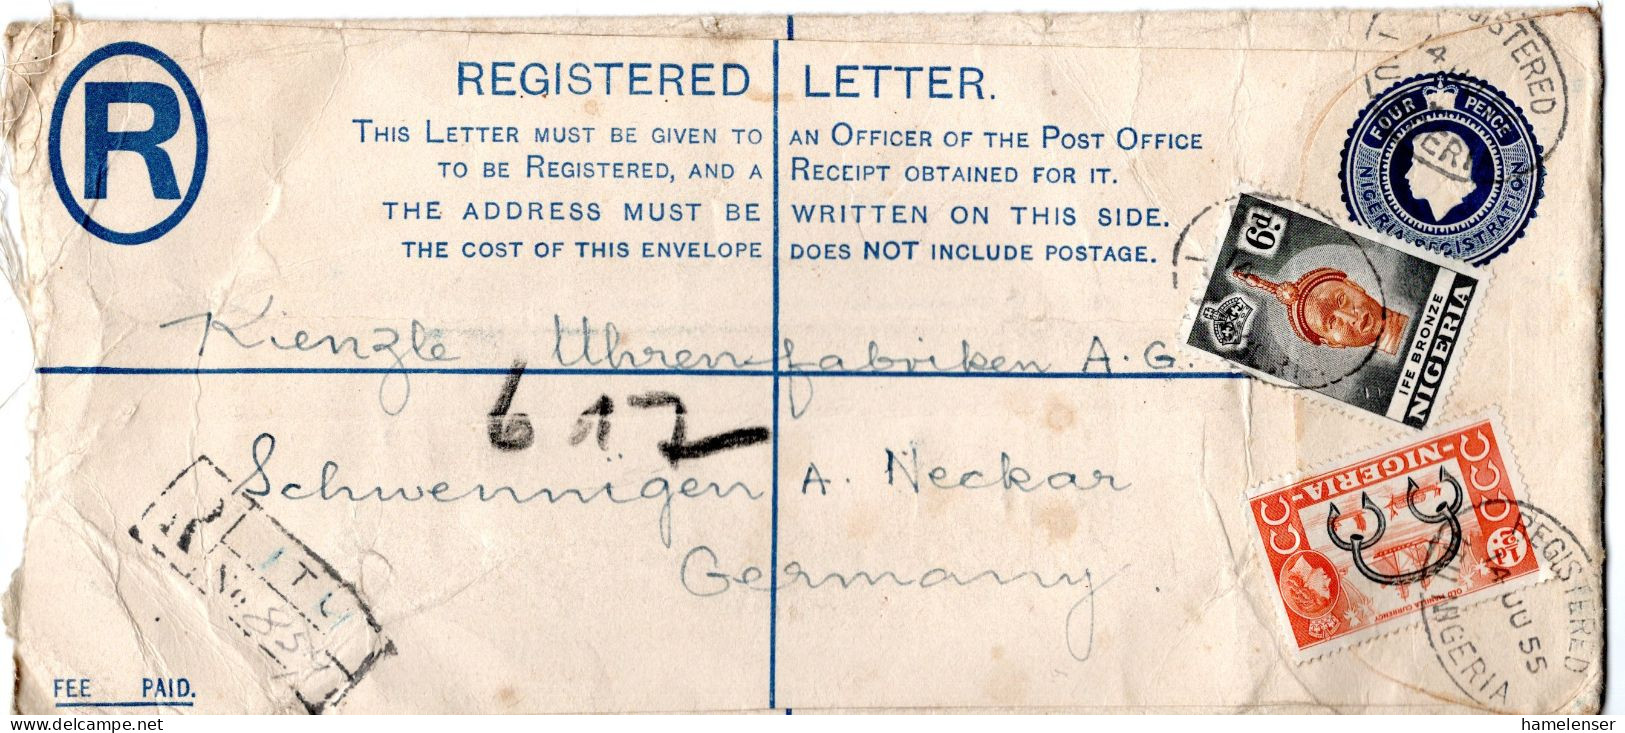 R
REGISTERED LETTER.
THIS LETTER MUST BE GIVEN TO AN OFFICER OF THE POST OFFICE
TO BE REGISTERED, AND A RECEIPT OBTAINED FOR IT.
THE ADDRESS MUST BE WRITTEN ON THIS SIDE.
THE COST OF THIS ENVELOPE DOES NOT INCLUDE POSTAGE.
FOUR PENCE
NIGERIA REGISTRATION
REGISTERED
6d
IFE BRONZE
NIGERIA
Kienzle Uhrenfabriken A.G.
617
Schwenningen A. Neckar
Germany.
NIGERIA
½d
OLD MANILLA CURRENCY
REGISTERED
55
NIGERIA
R
No
FEE PAID.
www.delcampe.net
hamelenser